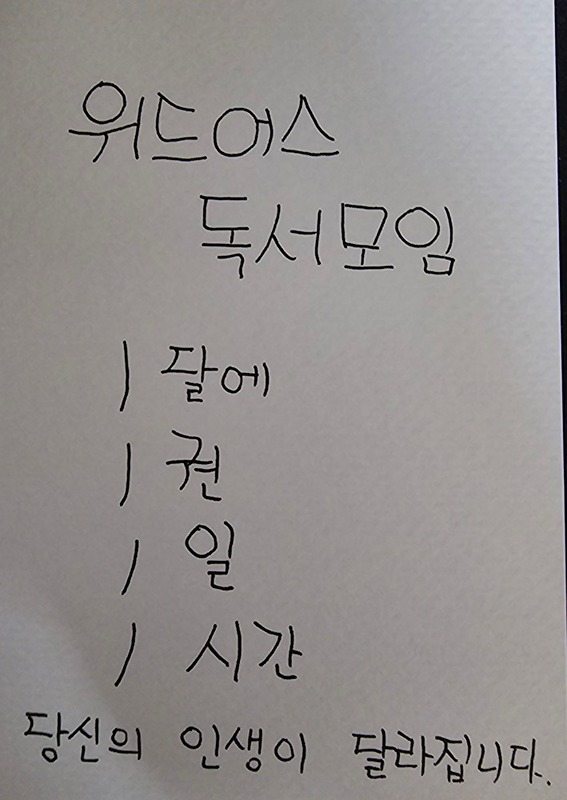 위드어스
독서모임
1 달에
1 권
1 일
1 시간
당신의 인생이 달라집니다.